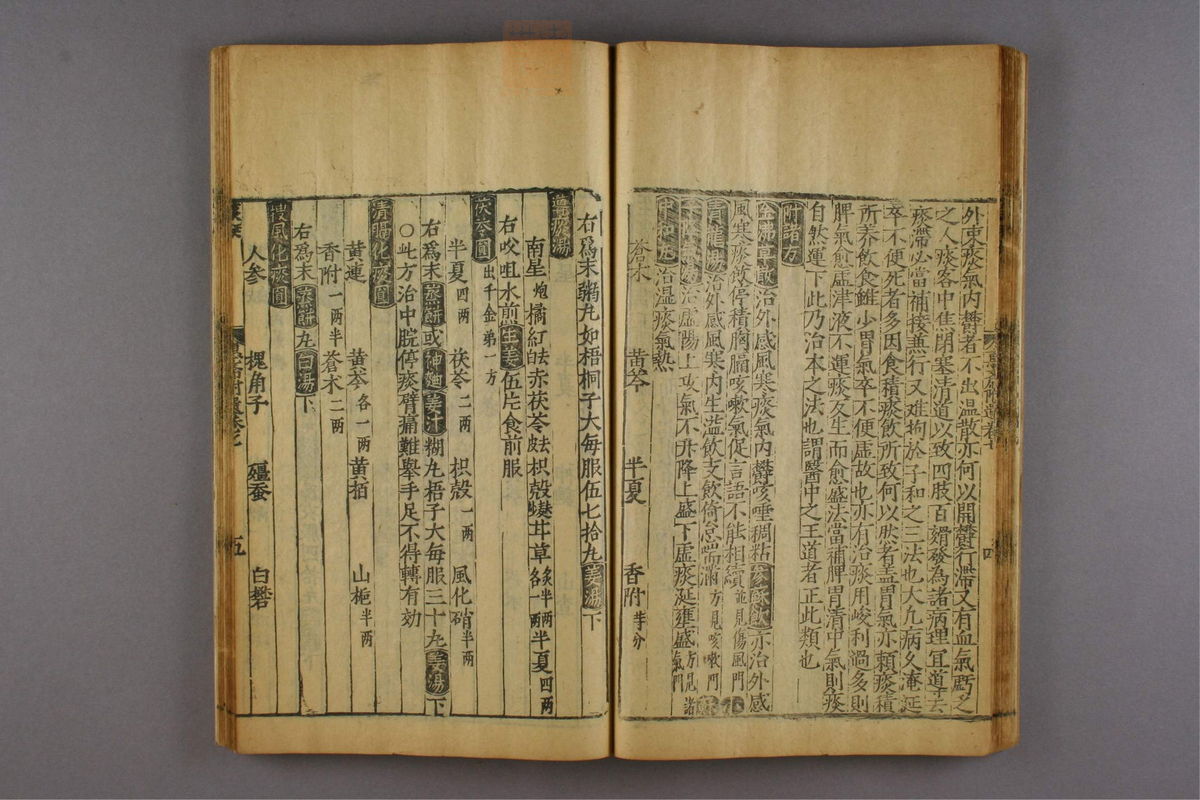 外束痰氣内欝者不出温散亦何以開欝行滯又有血氣虧乏
之人痰客中焦閉塞清道以致四肢百骸發為諸病理宜導去
痰滯必當補接兼行又難拘於子和之三法也大凡病久淹延
卒不便死者多因食積痰飲所致何以然者盖胃氣亦頼痰積
所养飲食雖少胃氣卒不便虚故也亦有治痰用峻利過多則
脾氣愈虚津液不運痰反生而愈盛法當補脾胃清中氣則痰
自然運下此乃治本之法也謂醫中之王道者正此類也
附諸方
金沸草散治外感風寒痰氣内欝咳唾稠粘參蘇飲亦治外感
風寒痰飲停積胸膈咳嗽氣促言語不能相續並見傷風門小
青龍湯治外感風寒内生溢飲支飲倚怠喘滿方見咳嗽門蘇
子降氣湯治虚陽上攻氣不升降上盛下虚痰涎壅盛方見諸氣門
中和丸治湿痰氣熱
蒼木 黄芩 半夏 香附芓分
右爲末粥丸如梧桐子大每服伍七拾丸姜湯下
導痰湯
南星炮 橘紅去白 赤茯苓去皮 枳殻麩炒 甘草炙半両各一両 半夏四両
右㕮咀水煎生姜伍片食前服
茯苓圓出千金第一方
半夏四両 茯苓二両 枳殻一両 風化硝半両
右爲末蒸餅或神麯姜汁糊丸梧子大每服三十丸姜湯下
〇此方治中脘停痰臂痛難舉手足不得轉有効
清膈化痰圓
黄連 黄芩各一両 黄栢 山梔半両
香附一両半 蒼术二両
右爲末蒸餅丸白湯下
搜風化痰圓
人參 槐角子 殭蚕 白礬
五